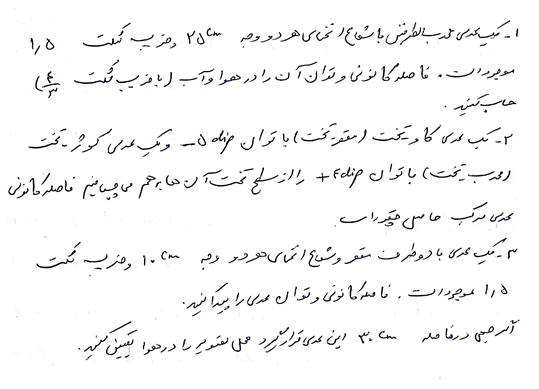 ۱- یک عدسی محدب الطرفین با شعاع انحنای هر دو وجه ۲۵cm و ضریب شکست ۱٫۵
موجود است. فاصله کانونی و توان آن را در هوا و آب (با ضریب شکست ۴/۳)
حساب کنید.
۲- یک عدسی کاو تخت (مقعر تخت) با توان ۵- diop و یک عدسی کوژ تخت
(محدب تخت) با توان ۴+ diop را از سطح تخت آن ها به هم می چسبانیم فاصله کانونی
عدسی مرکب حاصل چقدر است.
۳- یک عدسی با دو طرف مقعر و شعاع انحنای هر دو وجه ۱۰cm و ضریب شکست
۱٫۵ موجود است. فاصله کانونی و توان عدسی را پیدا کنید.
اگر جسمی در فاصله ۳۰cm این عدسی قرار گیرد محل تصویر را در هوا تعیین کنید.